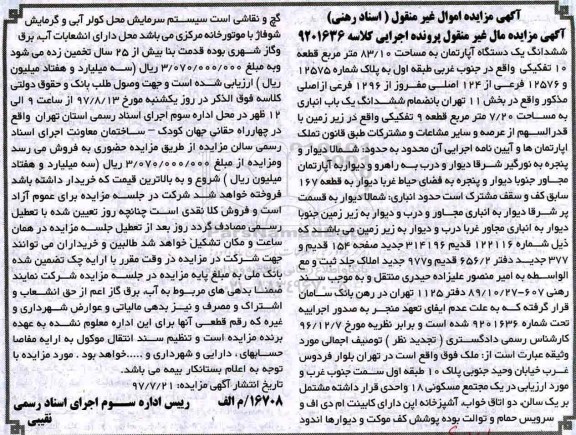 آگهی مزایده اموال غیر منقول ( اسناد رهنی)
آگهی مزایده مال غیر منقول پرونده اجرایی کلاسه ۹۲۰۱۶۳۶
ششدانگ یک دستگاه آپارتمان به مساحت ۸۳/۱۰ متر مربع قطعه
۱۰ تفکیکی واقع در جنوب غربی طبقه اول به پلاک شماره ۱۲۵۷۵
و ۱۲۵۷۶ فرعی از ۱۲۴ اصلی مفروز از ۱۲۹۶ فرعی ازاصلی
مذکور واقع در بخش ۱۱ تهران بانضمام ششدانگ یک باب انباری
به مساحت ۷/۲۰ متر مربع قطعه ۹ تفکیکی واقع در زیر زمین با
قدرالسهم از عرصه و سایر مشاعات و مشترکات طبق قانون تملک
آپارتمان ها و آیین نامه اجرایی آن محدود به حدود: شمالا دیوار و
پنجره به نورگیر شرقا دیوار و درب به راهرو و دیواربه آپارتمان
مجاور جنوبا دیوار و پنجره به فضای حیاط غربا دیوار به قطعه ۱۶۷
سابق کف و سقف مشترک است حدود انباری: شمالا دیوار به قسمت
پر شرقا دیوار به انباری مجاور و درب و دیوار به زیر زمین جنوبا
دیوار به انباری مجاور غربا درب و دیوار به زیر زمین می باشد که
ذیل شماره ۱۲۲۱۱۶ قدیم و ۳۱۴۱۹۶ جدید صفحه ۱۵۴ قدیم و
۳۷۷ جدید دفتر ۶۵۶/۲ قدیم و۹۷۷ جدید املاک جلد ثبت و مع
الواسطه به امیر منصور علیزاده حیدری منتقل و به موجب سند
رهنی ۶۰۷-۸۹/۱۰/۲۷ دفتر ۱۱۲۵ تهران در رهن بانک سامان
قرار گرفته که به علت عدم ایفای تعهد منجر به صدور اجراییه
تحت شماره ۹۲۰۱۶۳۶ شده است و برابر نظریه مورخ ۹۶/۱۲/۷
کارشناس رسمی دادگستری ( تجدید نظر ) توصیف اجمالی مورد
وثیقه عبارت است از: ملک فوق واقع است در تهران بلوار فردوس
غرب خیابان وحید جنوبی پلاک ۱۰ طبقه اول سمت جنوب غرب و
مورد ارزیابی در یک مجتمع مسکونی ۱۸ واحدی قرار داشته مشتمل
بر یک سالن، دو اتاق خواب، آشپزخانه اپن دارای کابینت ام دی اف و
سرویس حمام و توالت بوده پوشش کف موکت و دیوارها اندود
گچ و نقاشی است سیستم سرمایش محل کولر آبی و گرمایش
شوفاژ با موتورخانه مرکزی می باشد محل دارای انشعابات آب، برق
وگاز شهری بوده قدمت بنا بیش از ۲۵ سال تخمین زده می شود
وبه مبلغ ۳/۰۷۰/۰۰۰/۰۰۰ ریال (سه میلیارد و هفتاد میلیون
ریال ) ارزیابی شده است و جهت وصول طلب بانک و حقوق دولتی
کلاسه فوق الذکر در روز یکشنبه مورخ ۹۷/۸/۱۳ از ساعت ۹ الی
۱۲ ظهر در محل اداره سوم اجرای اسناد رسمی استان تهران واقع
در چهارراه حقانی جهان کودک – ساختمان معاونت اجرای اسناد
رسمی سالن مزایده از طریق مزایده حضوری به فروش می رسد
ومزایده از مبلغ ۳/۰۷۰/۰۰۰/۰۰۰ ریال (سه میلیارد و هفتاد
میلیون ریال ) شروع و به بالاترین قیمت که خریدار داشته باشد
فروخته خواهد شد شرکت در جلسه مزایده برای عموم آزاد
است و فروش کلا نقدی است چنانچه روز تعیین شده با تعطیل
رسمی مصادف گردد روز بعد از تعطیل جلسه مزایده در همان
ساعت و مکان تشکیل خواهد شد طالبین و خریداران می توانند
جهت شرکت در مزایده در وقت مقرر با ارایه چک تضمین شده
بانک ملی به مبلغ پایه مزایده در جلسه مزایده شرکت نمایند
ضمنا بدهی های مربوط به آب، برق گاز اعم از حق انشعاب و
اشتراک و مصرف و نیز بدهی مالیاتی و عوارض شهرداری و
غیره که رقم قطعی آنها برای این اداره معلوم نشده به عهده
برنده مزایده است و تنظیم سند انتقال موکول به ارایه مفاصا
حسابهای ، دارایی و شهرداری و .....خواهد بود . مورد مزایده با
توجه به اعلام بستانکار بیمه می باشد.
تاریخ انتشار آگهی مزایده: ۹۷/۷/۲۱
۱۶۷۰۸/م الف رییس اداره سوم اجرای اسناد رسمی
نقیبی